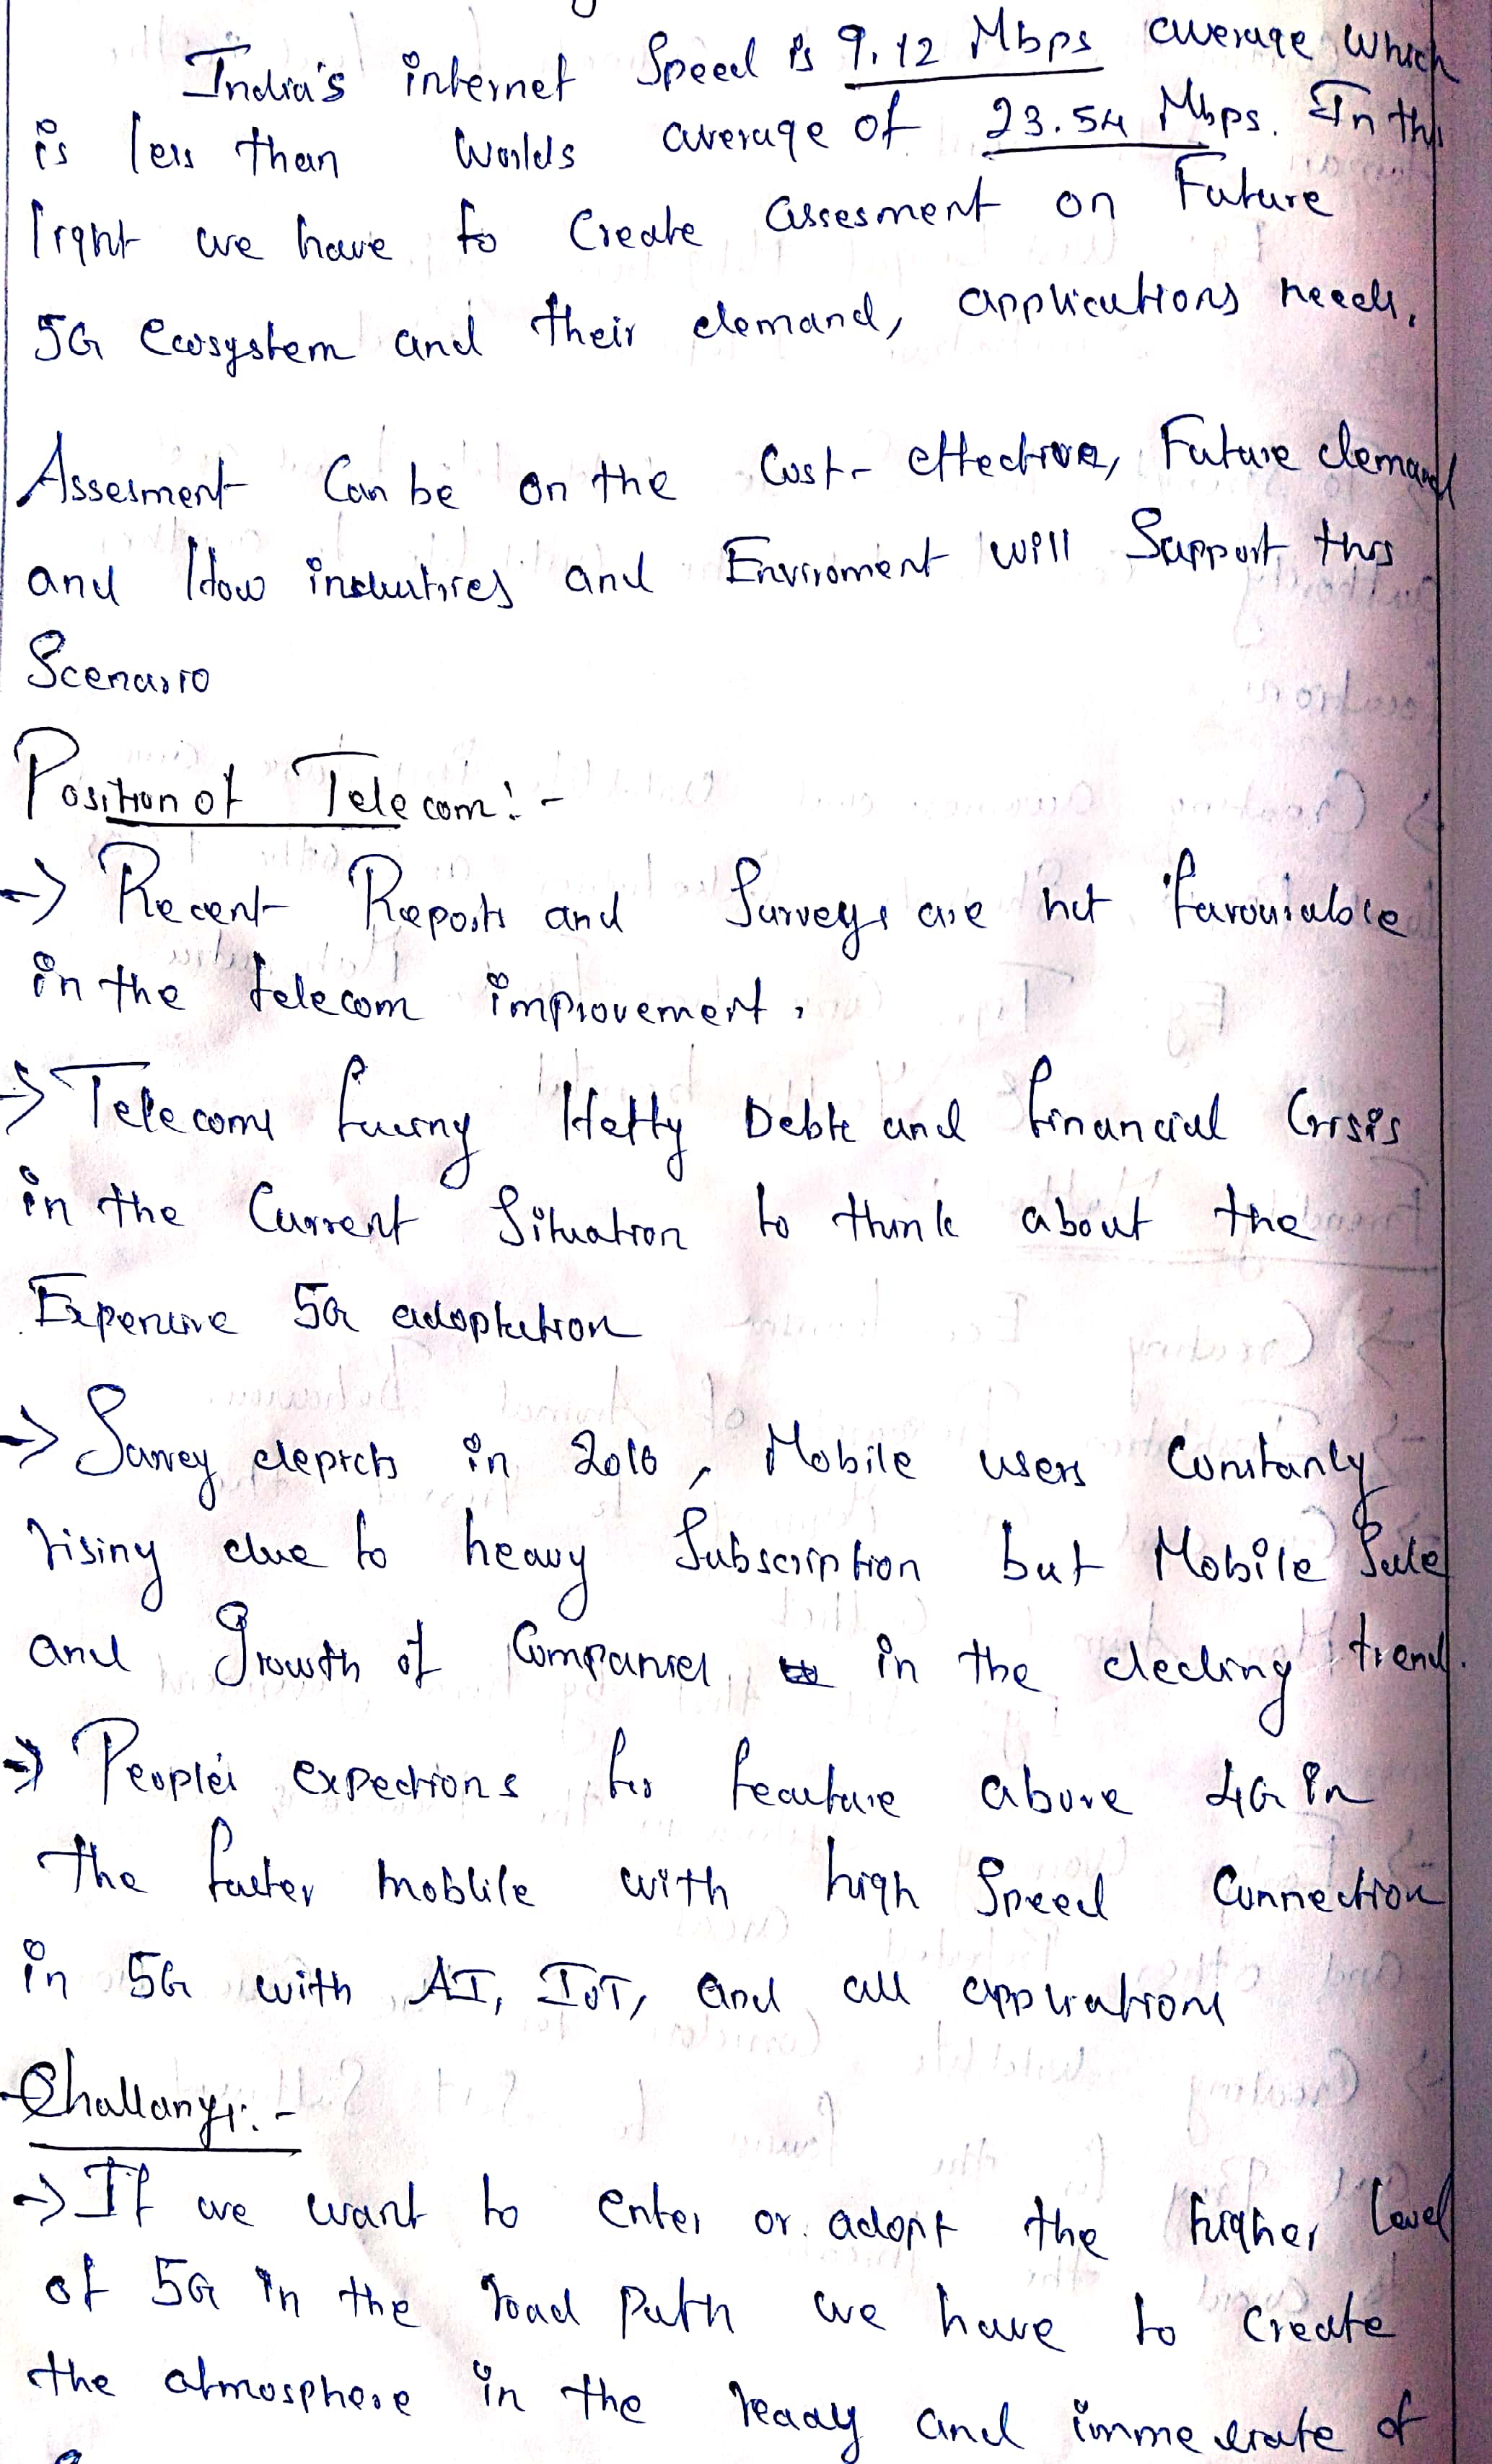 India's internet Speed is 9.12 Mbps average which
is less than worlds average of 23.54 Mbps. In this
light we have to Create assesment on Future
5G Ecosystem and their demand, applications needs.
Assesment Can be on the Cost-effective, Future demand
and How industires and Enviroment will Support this
Scenario
Position of Telecom:-
-> Recent Reports and Surveys are not favourable
in the telecom improvement.
-> Telecoms facing Hefty Debts and financial Crisis
in the Current Situation to think about the
Expensive 5G adoptation
-> Survey depicts in 2016, Mobile users Constantly
rising due to heavy Subscription but Mobile Sale
and Growth of Companies in the decling trend.
-> People's expections for feature above 4G in
the faster moblile with high Speed Connection
in 5G with AI, IoT, and all applications
Challangs:-
-> If we want to enter or adopt the higher level
of 5G in the road path we have to create
the atmosphere in the ready and of